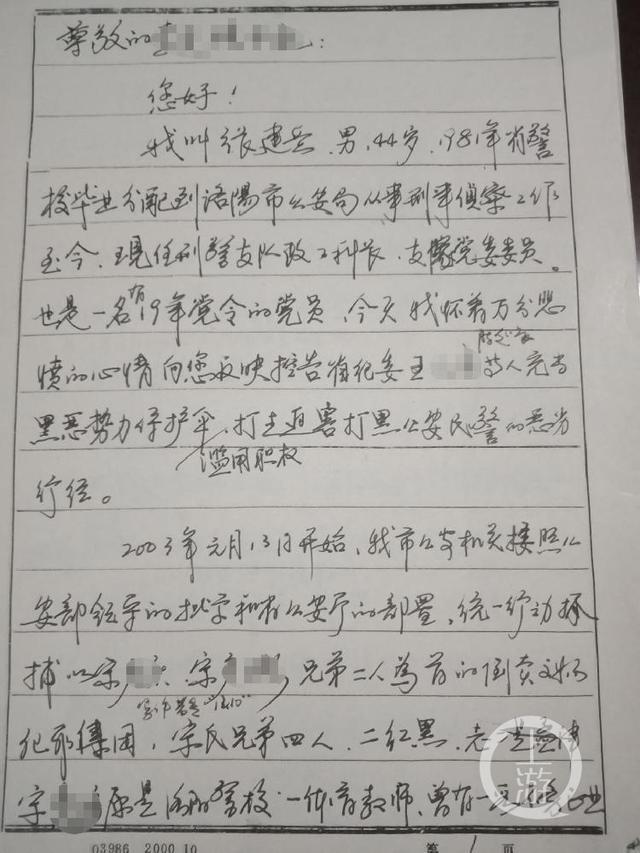 尊敬的
您好！
我叫张建芸，男，44岁，1981年省警
校毕业分配到洛陽市公安局从事刑事侦察工作
至今，現任刑警支队政工科长，支隊党委委员。
也是一名有19年党令的党员，今天我怀着万分悲
愤的心情向您反映控告省纪委王等人充当
黑恶势力保护伞，滥用职权打击迫害打黑公安民警的恶劣
行径。
2003年元月13日开始，我市公安机关按照公
安部领导的批示和省公安厅的部置，统一行动抓
捕以宋、宋兄弟二人為首的倒卖文物
犯罪集团，宋氏兄弟四人，二红黑，老
宋原是洛阳警校一体育教师，曾有一
03986 2000.10 第1页
上游